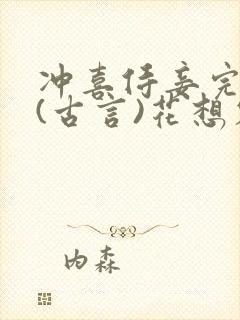 冲喜侍妾完
(古言)花想
内森